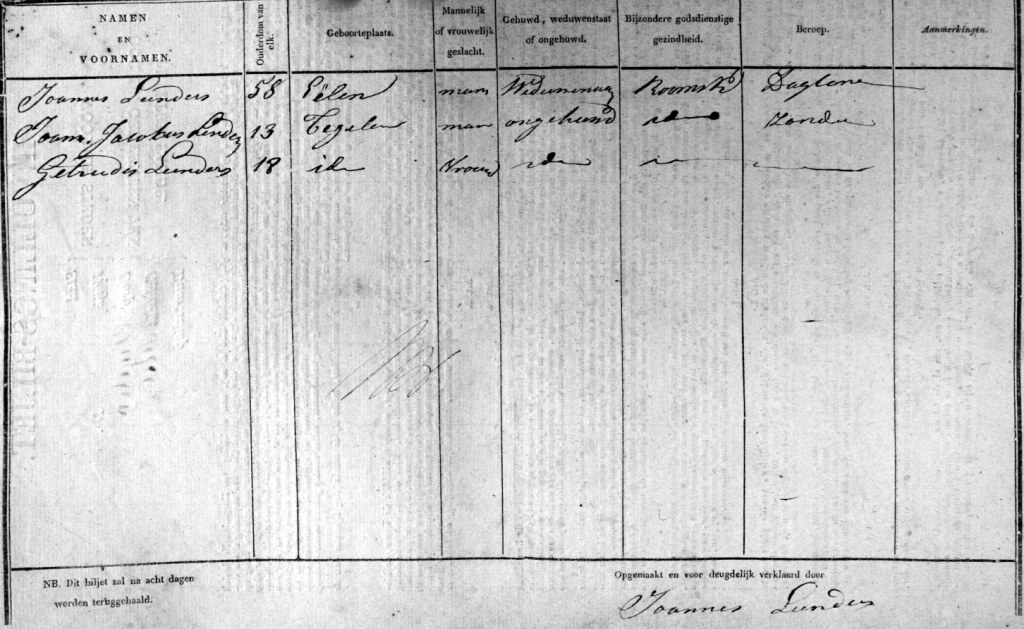 NAMEN EN VOORNAMEN. Ouderdom van elk. Geboorteplaats. Mannelijk of vrouwelijk geslacht. Gehuwd, weduwenstaat of ongehuwd. Bijzondere godsdienstige gezindheid. Beroep. Aanmerkingen.
Joannes Lunders 58 man Roomsch
Joann. Jacobus 13 Tegelen man ongehuwd idem
Getrudis Lunders 18 idem vrouw idem
NB. Dit biljet zal na acht dagen
worden teruggehaald.
Opgemaakt en voor deugdelijk verklaard door
Joannes Lunders